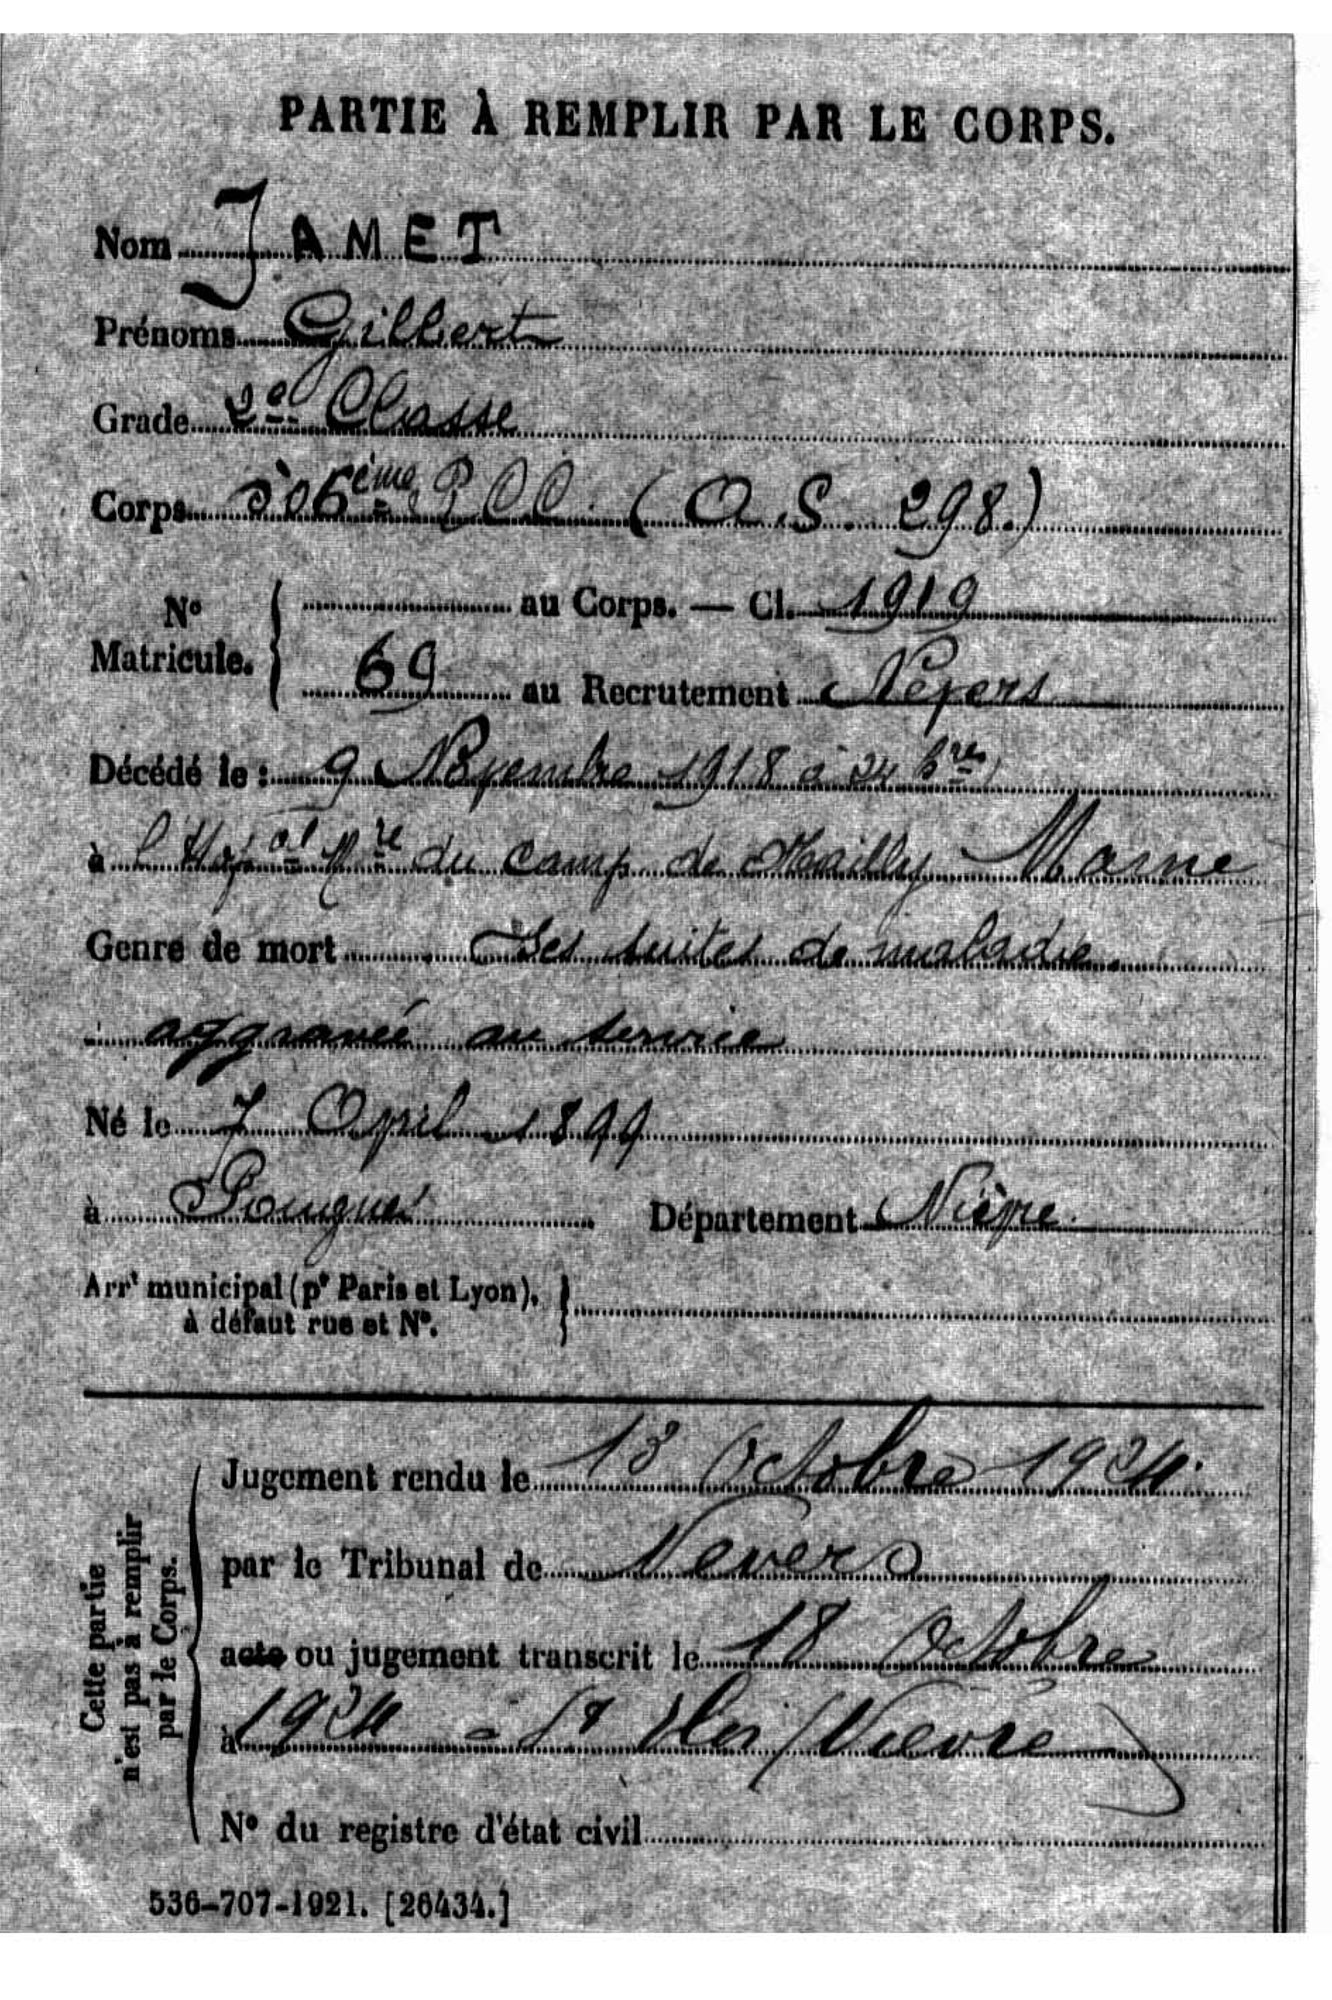 PARTIE À REMPLIR PAR LE CORPS.
Nom JAMET
Prénoms Gilbert
Grade 2e Classe
Corps 506ème R C C. (A.S. 298.)
No Matricule. { au Corps. — Cl. 1919
69 au Recrutement Nevers
Décédé le : 9 Novembre 1918 à 24 hres
à l'Hopal Mre du camp de Mailly Marne
Genre de mort Des suites de maladie
aggravée au service
Né le 7 Avril 1899
à Pougues Département Nièvre.
Arrt municipal (pr Paris et Lyon), }
à défaut rue et No.
Cette partie
n'est pas à remplir
par le Corps.
Jugement rendu le 13 Octobre 1924.
par le Tribunal de Nevers
acte ou jugement transcrit le 18 Octobre
à 1924 - St (Nièvre)
No du registre d'état civil
536-707-1921. [26434.]